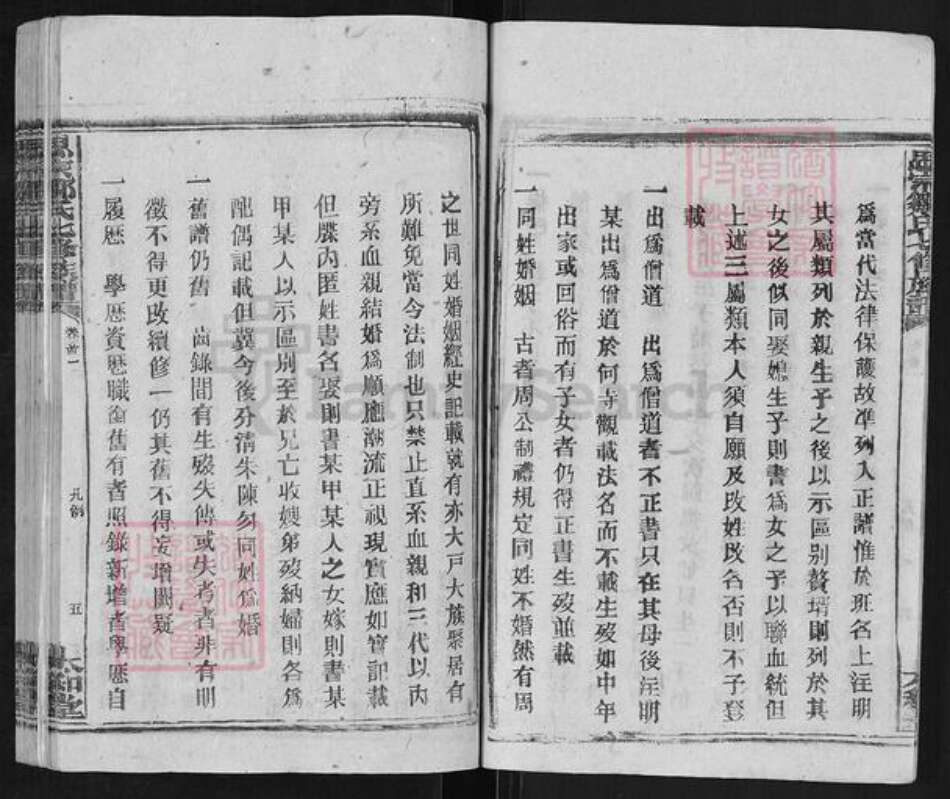 爲當代法律保護故准列入正譜惟於班名上注明
其屬類列於親生子之後以示區别贅壻則列於其
女之後似同娶媳生子則書爲女之子以聯血統但
上述三屬類本人須自願及改姓改名否則不予登
載
一出爲僧道　出爲僧道者不正書只在其母後注明
某出爲僧道於何寺觀載法名而不載生歿如中年
出家或回俗而有子女者仍得正書生歿並載
一同姓婚姻　古者周公制禮規定同姓不婚然有周
之世同姓婚姻經史記載就有亦大戸大族聚居有
所難免當今法制也只禁止直系血親和三代以内
旁系血親結婚爲順應潮流正視現實應如實記載
但牒内匿姓書名娶則書某甲某人之女嫁則書某
甲某人以示區别至於兄亡收嫂弟歿納婦則各爲
配偶記載但冀今後分清朱陳勿同姓爲婚
一舊譜仍舊　齒錄間有生歿失傳或失考者非有明
徵不得更改續修一仍其舊不得妄增闕疑
一履歷　學歷資歷職銜舊有者照錄新增者學歷自
氏七修族譜
卷首
凡例
五
太和堂
FamilySearch